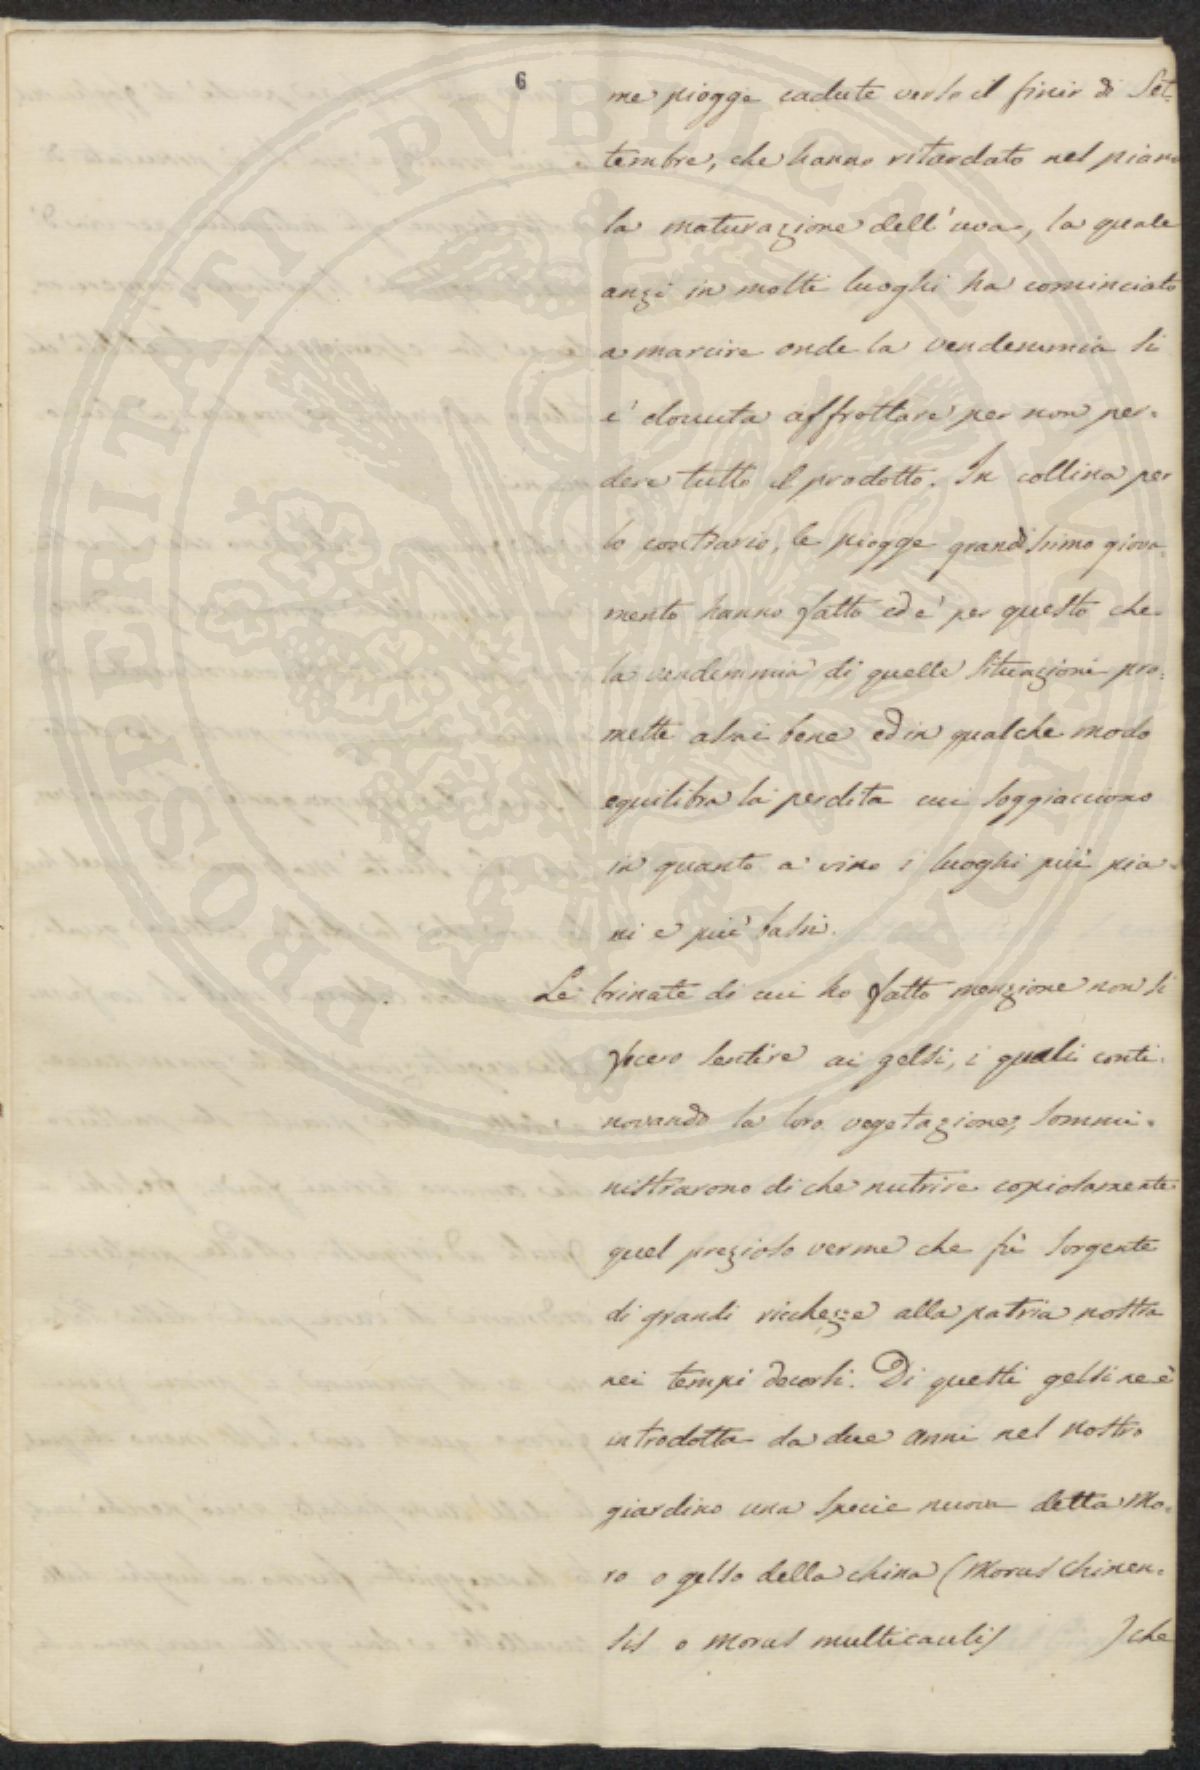 6
me piogge cadute verso il finir di Set-
tembre, che hanno ritardato nel piano
la maturazione dell'uva, la quale
anzi in molti luoghi ha cominciato
a marcire onde la vendemmia si
e' dovuta affrettare per non per-
dere tutto il prodotto. In collina per
lo contrario, le piogge grandissimo giova-
mento hanno fatto ed e' per questo che
la vendemmia di quelle situazioni pro-
mette assai bene ed in qualche modo
equilibra la perdita cui soggiacciono
in quanto a vino i luoghi più pia-
ni e più bassi.
Le brinate di cui ho fatto menzione non si
fecero sentire ai gelsi, i quali conti-
novando la loro vegetazione, sommi-
nistrarono di che nutrire copiosamente
quel prezioso verme che fù sorgente
di grandi ricchezze alla patria nostra
nei tempi decorsi. Di questi gelsi ne è
introdotta da due anni nel nostro
giardino una specie nuova detta Mo-
ro o gelso della china (Morus Chinen-
sis o Morus multicaulis ) che
PROSPERITATI PVBLICAE AVGENDAE